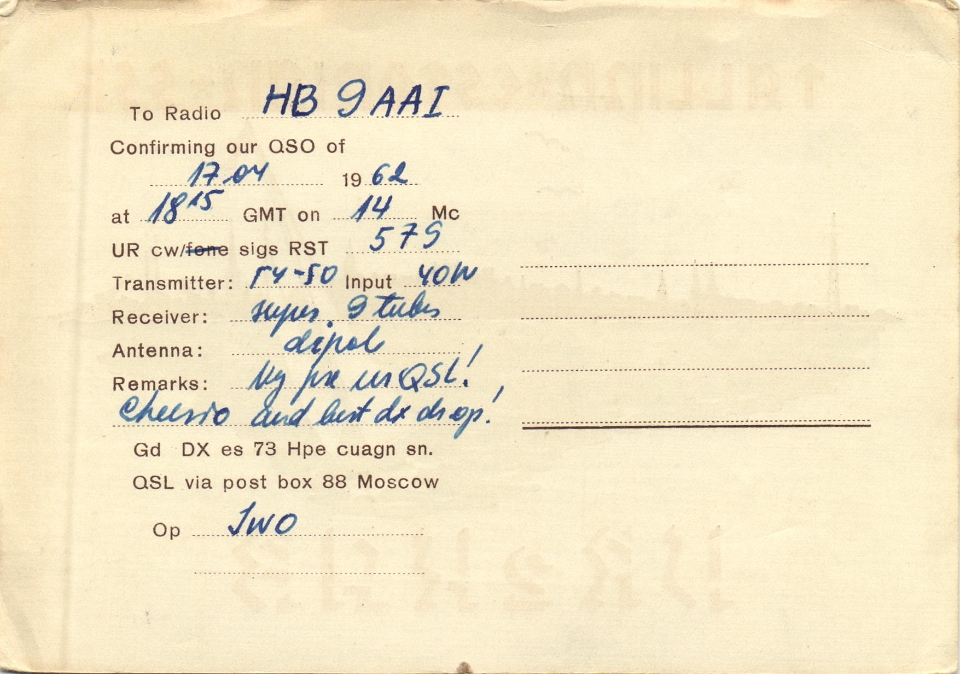 To Radio HB 9AAI
Confirming our QSO of
17.04 1962
at 18 15 GMT on 14 Mc
UR cw/fone sigs RST 579
Transmitter: Input 40W
Receiver: super. 9 tubes
Antenna: dipol
Remarks: QSL!
Cheerio and best dx dr op!
Gd DX es 73 Hpe cuagn sn.
QSL via post box 88 Moscow
Op IWO